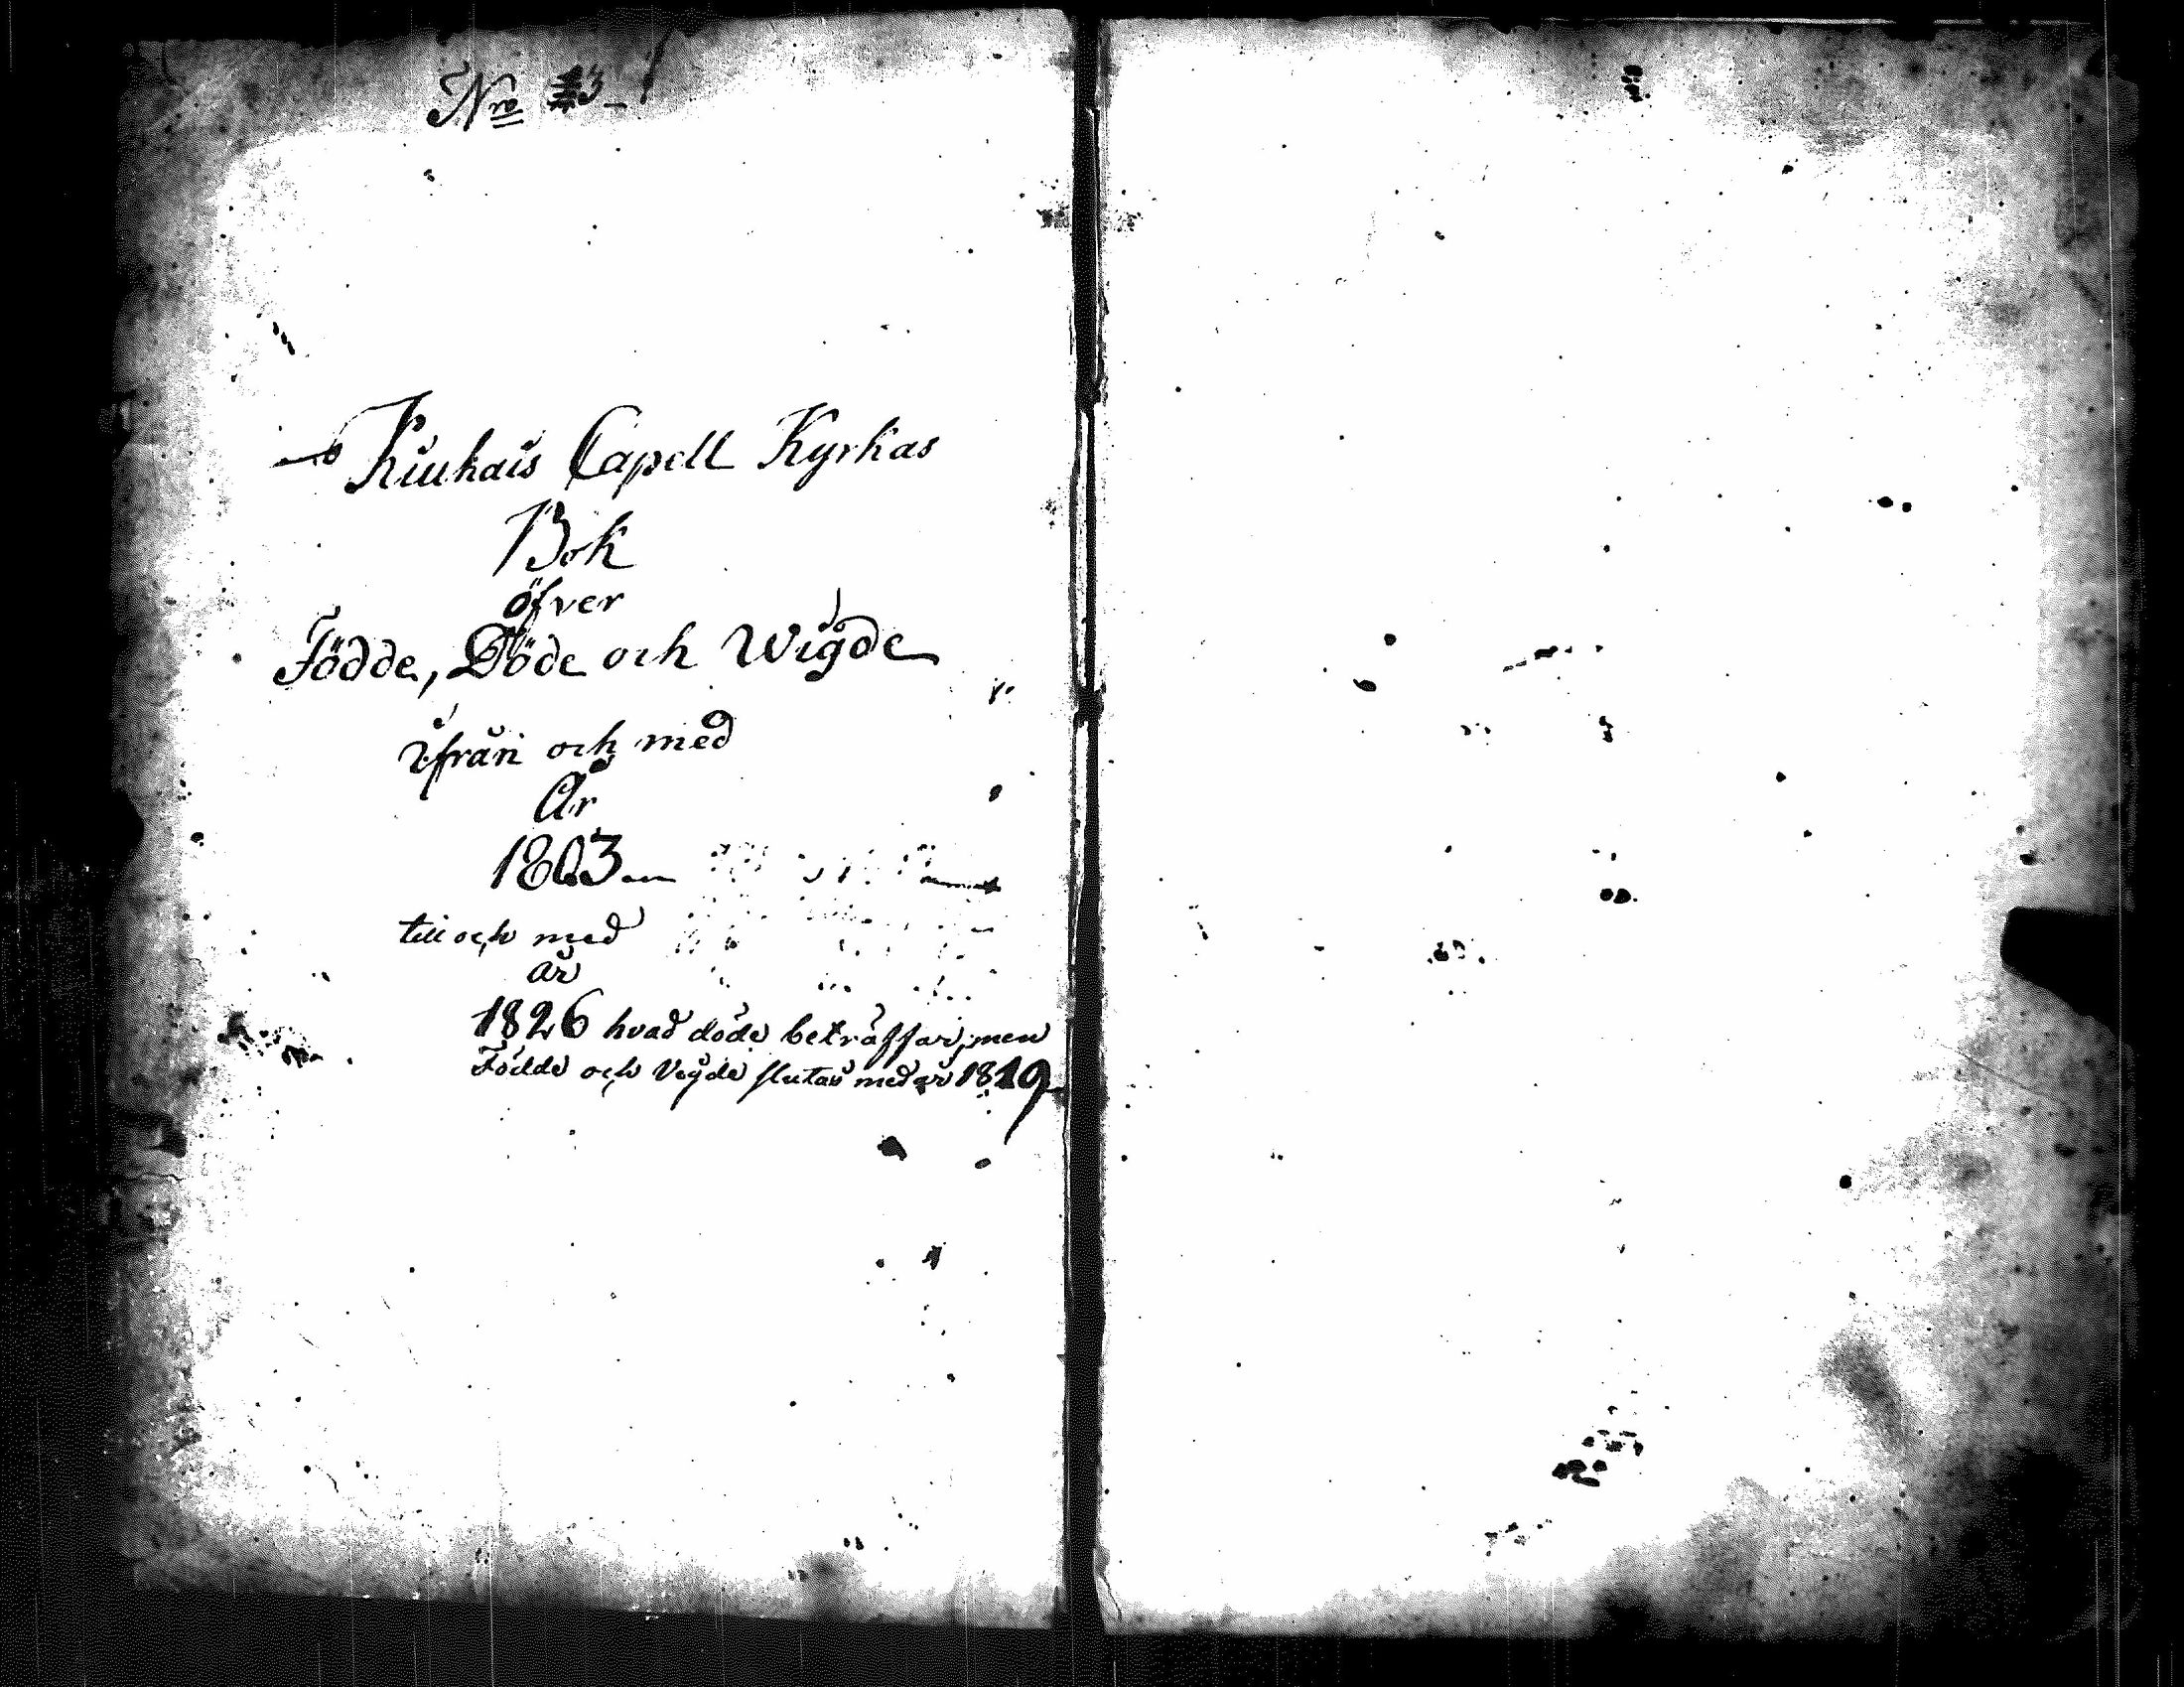 Nro 3
Kiuhais Capell Kyrkas
Bok
öfver
Födde, Döde och Wigde
ifrån och med
År
1803
till och med
år
1826 hvad döde beträffar, men
Födde och Vigde slutas med år 1819